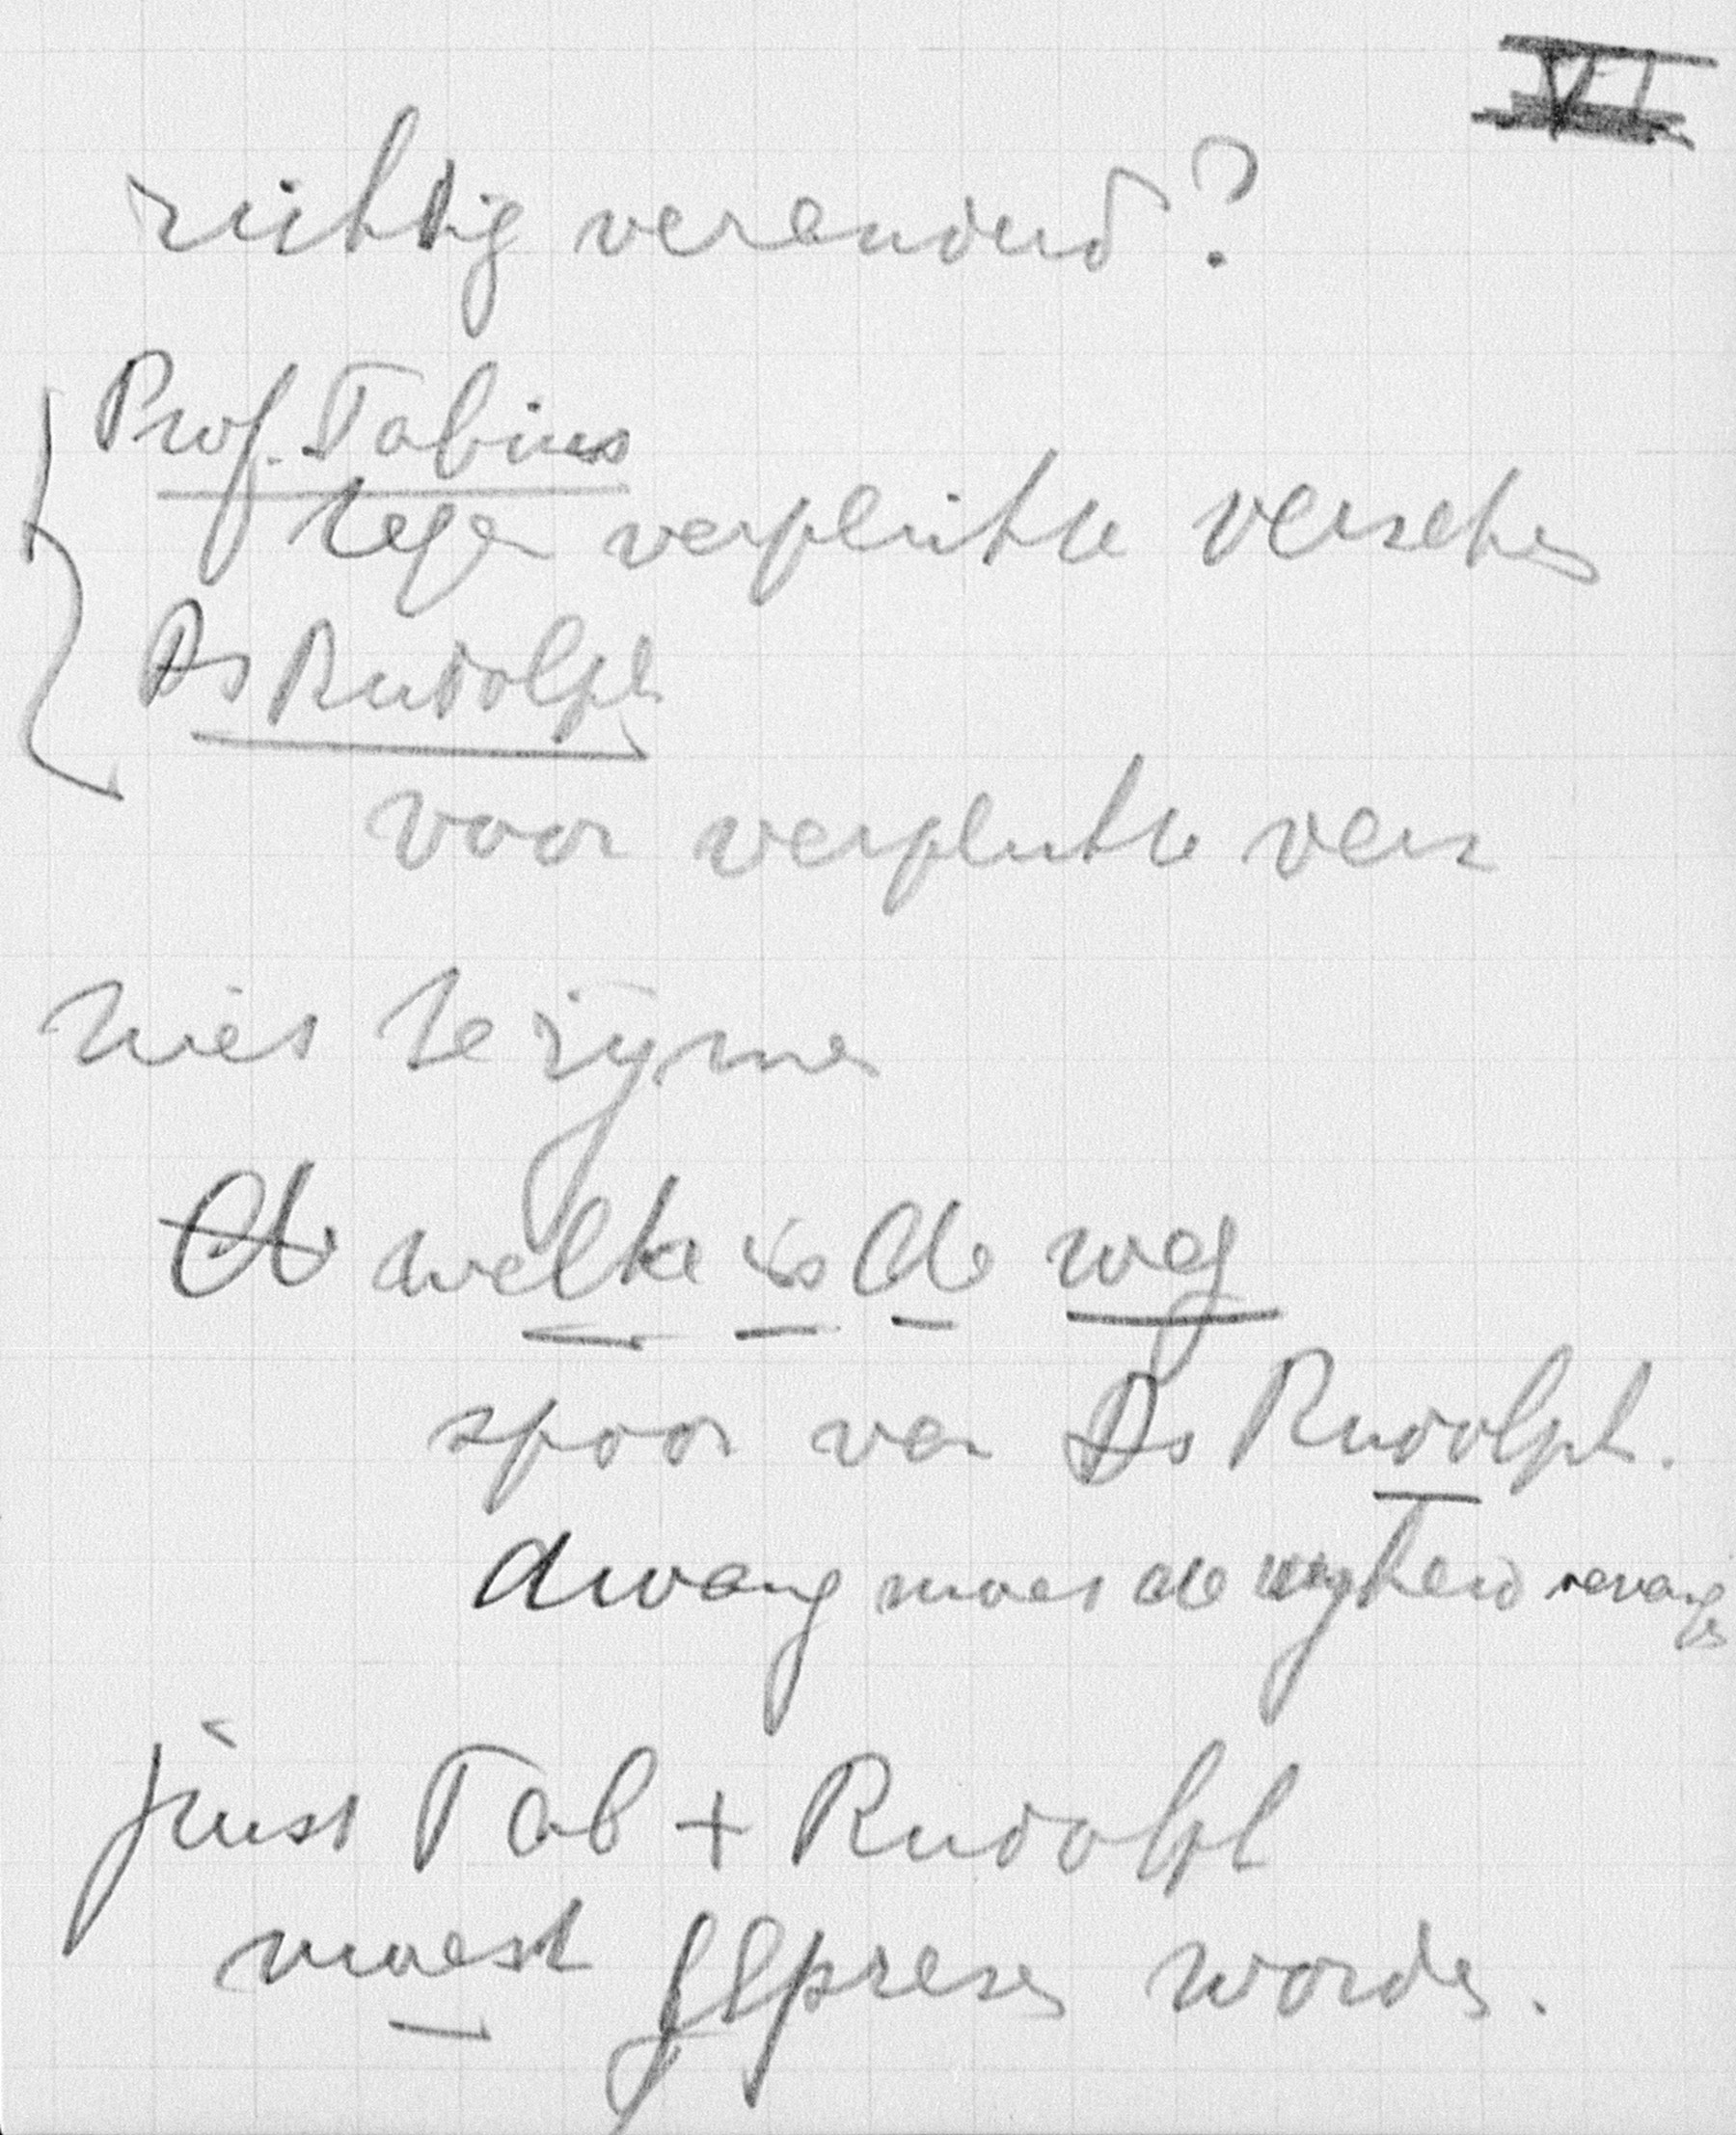 VI
richtig veranderd?
Prof. Fabius
tegen verplichte verzek
Ds Rudolph
voor verplichte verz
niet te rijmen
welke is de weg
spoor van Ds Rudolph.
dwang moet de vrijheid vervangen
juist Fab + Rudolph
moest geprezen worden.